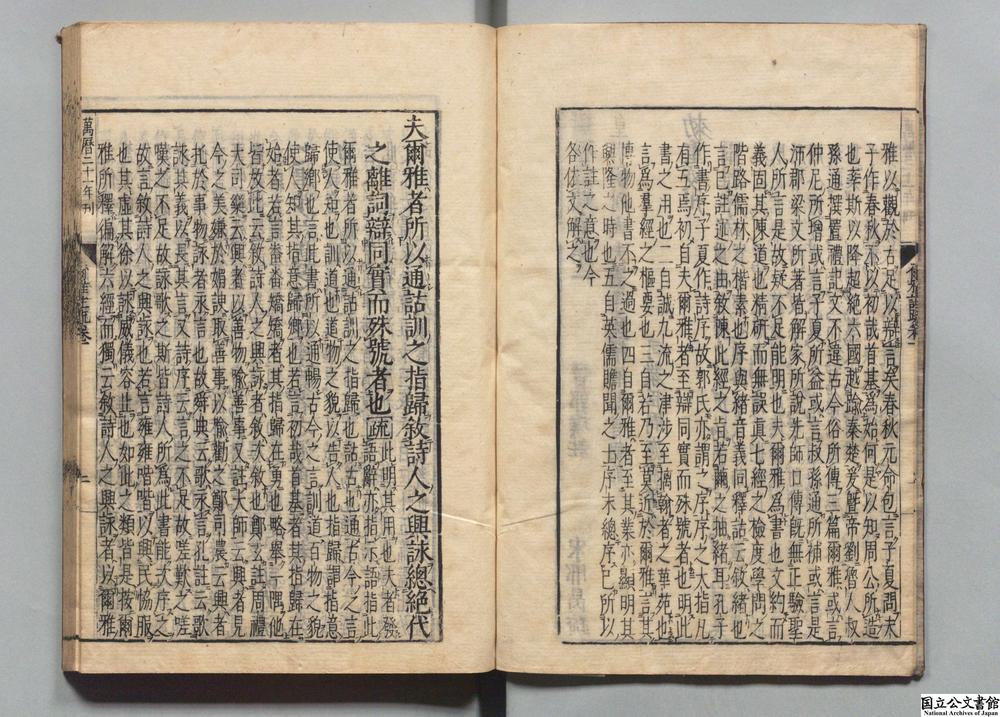 雅以觀於古足以辯言矣春秋元命包言子夏問夫
子作春秋不以初哉首基爲始何是以知周公所造
也率斯以降超絶六國越踰秦楚爰暨帝劉魯人叔
孫通撰置禮記文不違古今俗所傳三篇爾雅或言
仲尼所增或言子夏所益或言叔孫通所補或言是
沛郡梁文所著皆解家所說先師口傳旣無正驗聖
人所言是故疑不能明也夫爾雅爲書也文約而
義固其陳道也精研而無誤眞七經之檢度學問之
階路儒林之楷素也序與緒音義同釋詁云敘緒也
言已註述之由敘陳此經之旨若繭之抽緒耳孔子
作書序子夏作詩序故郭氏亦謂之序序之大指凡
有五焉初自夫爾雅者至辯同實而殊號者也明此
書之用也二自誠九流之津涉至摛翰者之華苑也
言其爲羣經之樞要也三自若乃至莫近於爾雅言其
博物他書不之過也四自爾雅者至其業亦顯明其
興隆之時也五自英儒贍聞之士序末總序己所以
作註之意也今
各依文解之
夫爾雅者所以通詁訓之指歸敘詩人之興詠總絶代
之離詞辯同實而殊號者也疏
此明其用也夫者發
語辭亦指示語指此
爾雅者所以通詁訓之指歸也詁古也通古今之言
使人知也訓道也道物之貌以告人也指歸謂指意
歸鄉也言此書所以通暢古今之言訓道百物之貌
使人知其指意歸鄉也若言初哉首基者其指歸在
始者若言番番矯矯者其指歸在勇也略舉一隅他
皆放此云敘詩人之興詠者敘次敘也鄭玄註周禮
大司樂云興者以善物喻善事又註大師云興者見
今之美嫌於媚諛取善事以喻勸之鄭司農云興者
托於事物詠者永言也故舜典云歌永言孔註云歌
詠其義以長其言又詩序云言之不足故嗟歎之嗟
嘆之不足故詠歌之斯皆詩人所爲此書能次序之
故言敘詩人之興詠也若言雍雍喈喈以興民協服
也其虛其徐以詠威儀容止也如此之類皆是按爾
雅所釋徧解六經而獨云敘詩人之興詠者以爾雅
萬曆二十一年刊